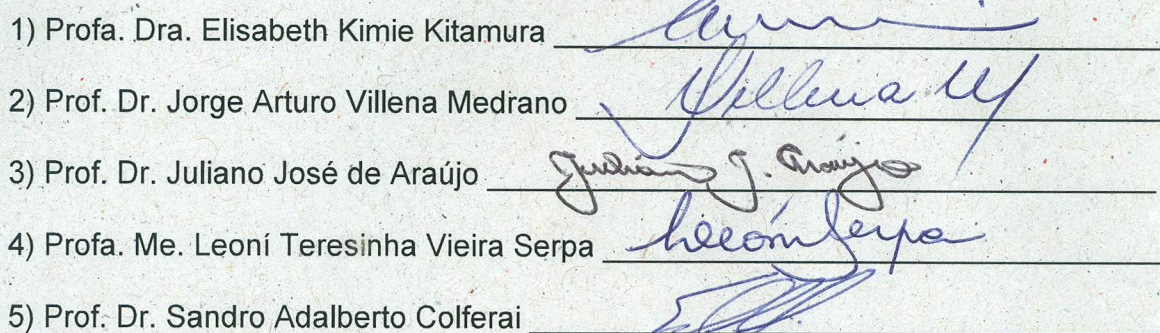 1) Profa. Dra. Elisabeth Kimie Kitamura
2) Prof. Dr. Jorge Arturo Villena Medrano Villena M
3) Prof. Dr. Juliano José de Araújo Juliano J. Araújo
4) Profa. Me. Leoní Teresinha Vieira Serpa Leoní Serpa
5) Prof. Dr. Sandro Adalberto Colferai